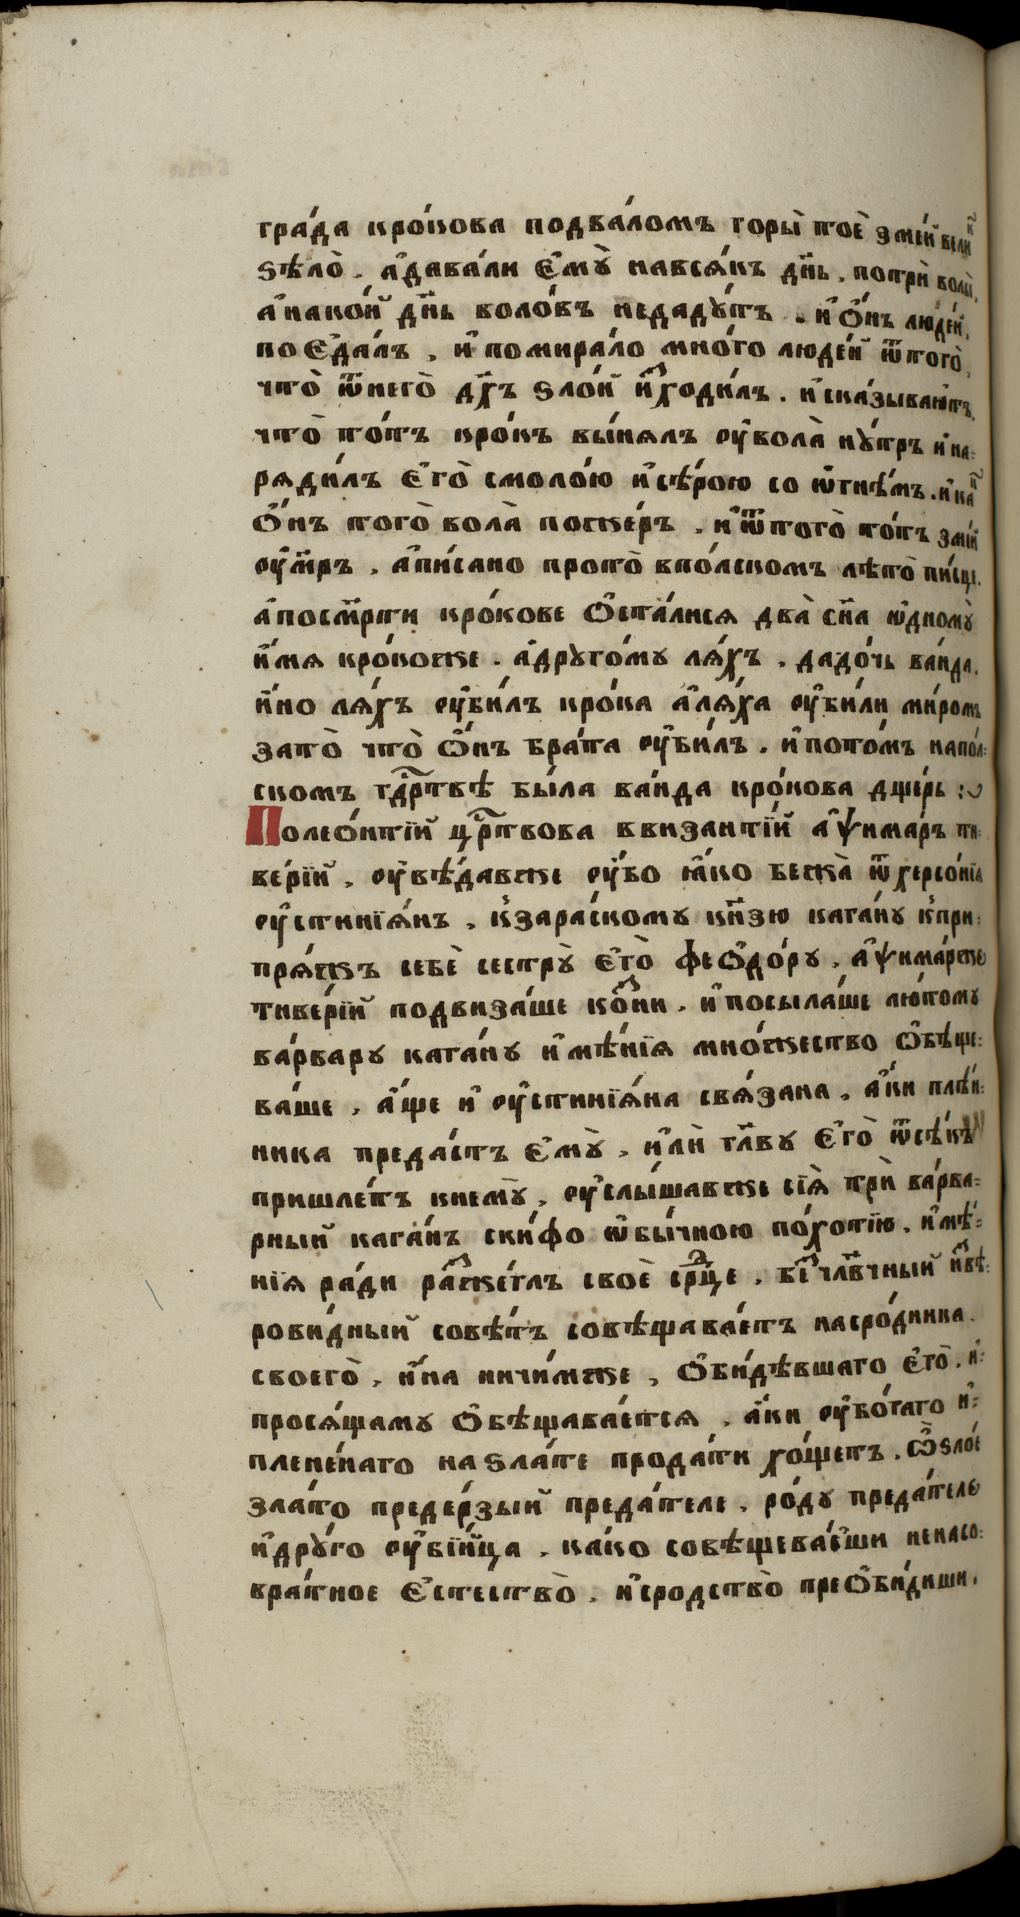 гра́да кро́кова подва́ломъ горы̀ тоѐ змéй вели́к
ѕѣлѡ̀. а҆дава́ли є҆мꙋ̀ навсѧ́къ дн҃ь, потрѝ волы̀,
а҆накой дн҃ь воло́въ недадꙋ́тъ. и҆ѻ́нъ люде́й,
поє҆да́лъ, и҆ помира́ло мно́го люде́й ѿтого̀,
что̀ ѿнего̀ дх҃ъ ѕло́й и҆сходи́лъ. и҆ска́зываютъ.
что̀ то́тъ кро́къ вы́нѧлъ ѹ҆вола̀ нꙋ́тръ и҆на:
рѧди́лъ є҆го̀ смоло́ю и҆сѣ́рою со ѡ҆гне́мъ. и҆какъ
ѻ҆́нъ того̀ вола̀ пожéръ, и҆ѿтого̀ то́тъ змі́й
ѹ҆́мръ, а҆пи́сано прото̀ впо́лскомъ лѣто̀ пи́сце.
а҆посм҃рти кро́кове ѻ҆ста́лисѧ два̀ сн҃а ѡ҆дномꙋ̀
и҆́мѧ кро́когже. а҆дрꙋго́мꙋ лѧ́хъ, дадо́чь ва́нда,
и҆́но лѧ́хъ ѹ҆би́лъ кро́ка а҆лѧ́ха ѹ҆би́ли ми́ромъ
зато̀ что̀ ѻ҆́нъ бра́та ѹ҆би́лъ. и҆пото́мъ напо́л:
скомъ гдⷭ҇рствѣ бы́ла ва́нда кро́кова дщéрь :
Полеѻ҆́нтїй црⷭ҇твова ввизанті́й а҆ѱима́ръ ти:
вéрїй, ѹ҆вѣ́давже ѹ҆́бо ꙗ҆́ко бежа̀ ѿхерсо́нїѧ
ѹ҆стинїѧ́нъ, к҆заразскому кн҃зю кага́нꙋ к҆при:
прѧ́жъ себѐ сестрꙋ̀ є҆го̀ феѻ҆до́рꙋ, а҆ѱима́рже
тивéрїй подвиза́ше ко́ни, и҆посыла́ше лю́томꙋ
ва́рварꙋ кага́нꙋ и҆мѣ́нїѧ мно́жество ѻ҆бѣще:
ва́ше, а҆́ще и҆ ѹ҆стинїѧ́на свѧ́зана, а҆́ки плѣ́н:
ника преда́стъ є҆мꙋ̀, и҆лѝ глⷡ҇ꙋ є҆го̀ ѿсѣ́къ
пришлéтъ кнемꙋ̀, ѹ҆слы́шавже сїѧ̀ трѝ ва́рва:
рный кага́нъ ски́фо ѡ҆бы́чною по́хотїю, и҆мѣ́:
нїѧ ра́ди ра́зжеглъ своѐ срⷣце, бе́зчлвⷱ҇ный и҆звѣ:
рови́дный совѣ́тъ совѣщава́етъ насро́дника.
своего̀, и҆на ничи́мже, ѻ҆би́дѣвшаго є҆го̀, и҆:
просѧ́щамꙋ ѻ҆бѣщава́етсѧ, а҆́ки ѹ҆бо́гаго и҆:
пленéнаго на ѕла́те прода́ти хо́щетъ. ѽѕло́е
зла́то предéрзый преда́теле, ро́дꙋ преда́телю
и҆дрꙋ́го ѹ҆бі́йца, ка́ко совѣщева́еши ненасо:
вра́тное є҆стество̀, и҆сродство̀ преѻ҆би́диши.